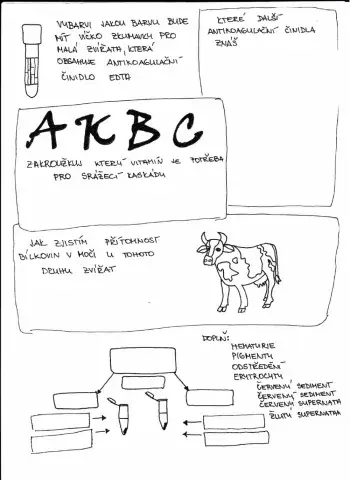 VYBARVI JAKOU BARVU BUDE
MÍT VÍČKO ZKUMAVKY PRO
MALÁ ZVÍŘATA, KTERÁ
OBSAHUJE ANTIKOAGULAČNÍ
ČINIDLO EDTA
KTERÉ DALŠÍ
ANTIKOAGULAČNÍ ČINIDLA
ZNÁŠ
A K B C
ZAKROUŽKUJ KTERÝ VITAMÍN JE POTŘEBA
PRO SRÁŽECÍ KASKÁDU
JAK ZJISTÍM PŘÍTOMNOST
BÍLKOVIN V MOČI U TOHOTO
DRUHU ZVÍŘAT
DOPLŇ:
HEMATURIE
PIGMENTY
ODSTŘEDĚNÍ
ERYTROCYTY
ČERVENÝ SEDIMENT
ČERVENÝ SEDIMENT
ČERVENÝ SUPERNATA
ŽLUTÝ SUPERNATAN